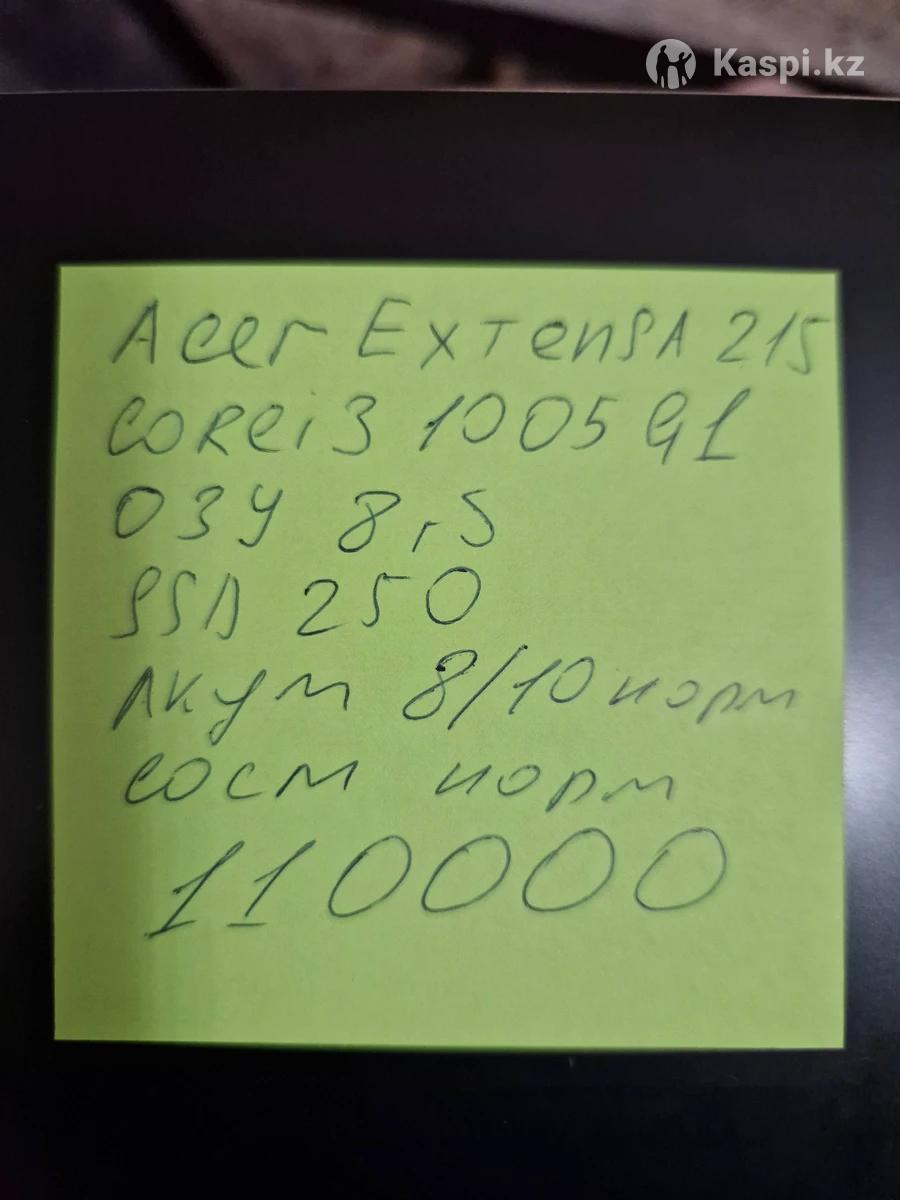 Kaspi.kz
Acer ExtensA 215
coRei3 1005G1
ОЗУ 8гб
SSD 250
Акум 8/10 норм
сост норм
110000